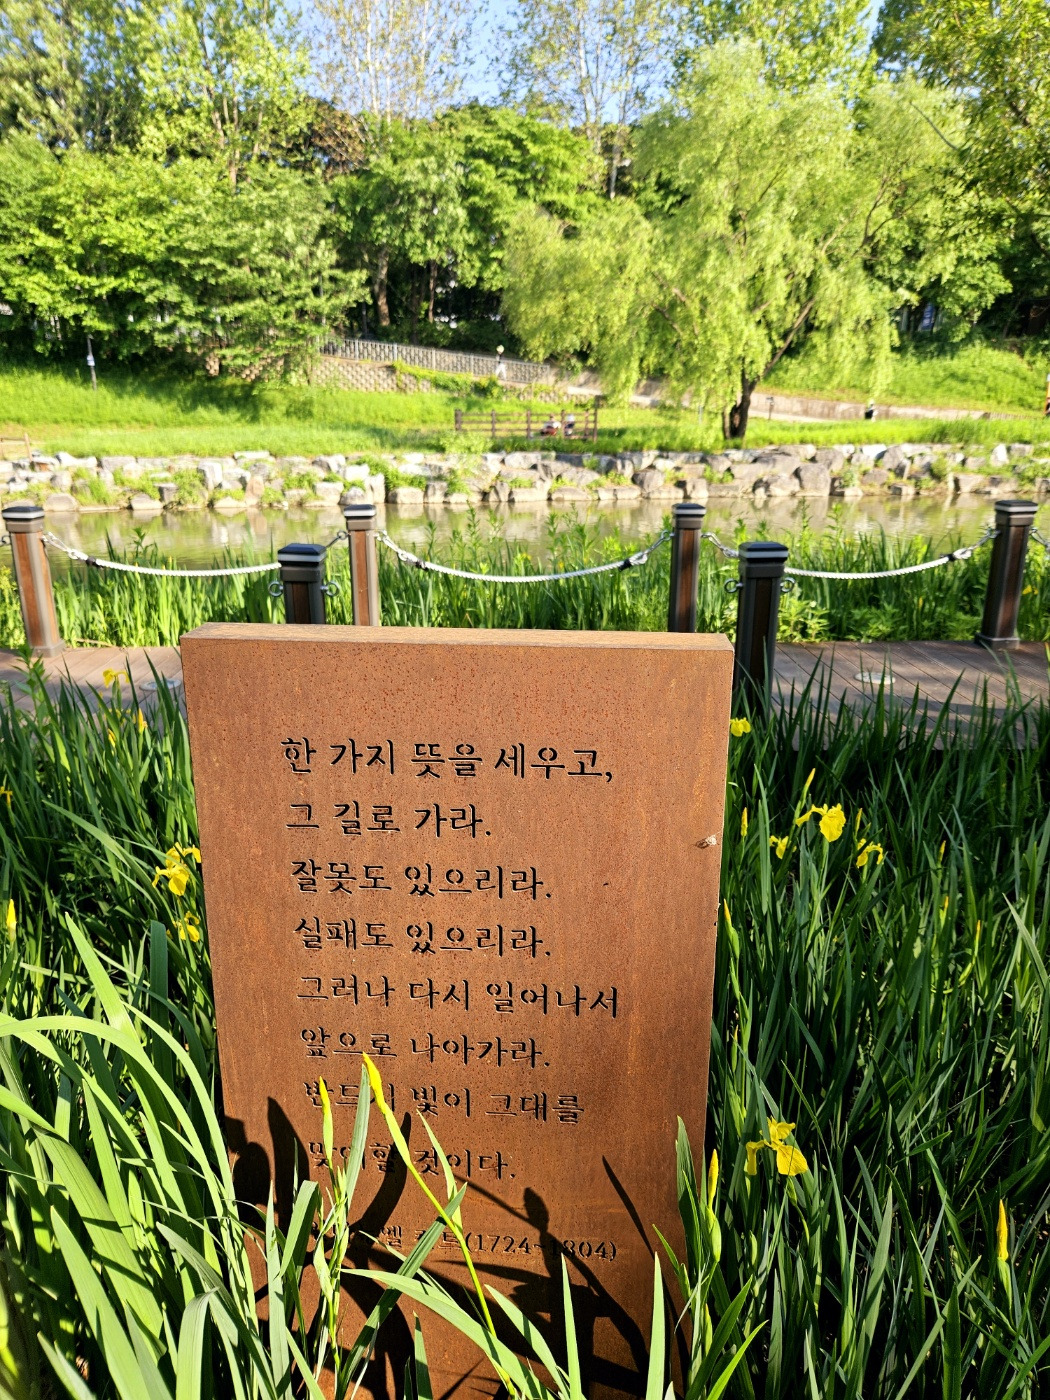 한 가지 뜻을 세우고,
그 길로 가라.
잘못도 있으리라.
실패도 있으리라.
그러나 다시 일어나서
앞으로 나아가라.
반드시 빛이 그대를
맞이할 것이다.
칸트(1724~1804)